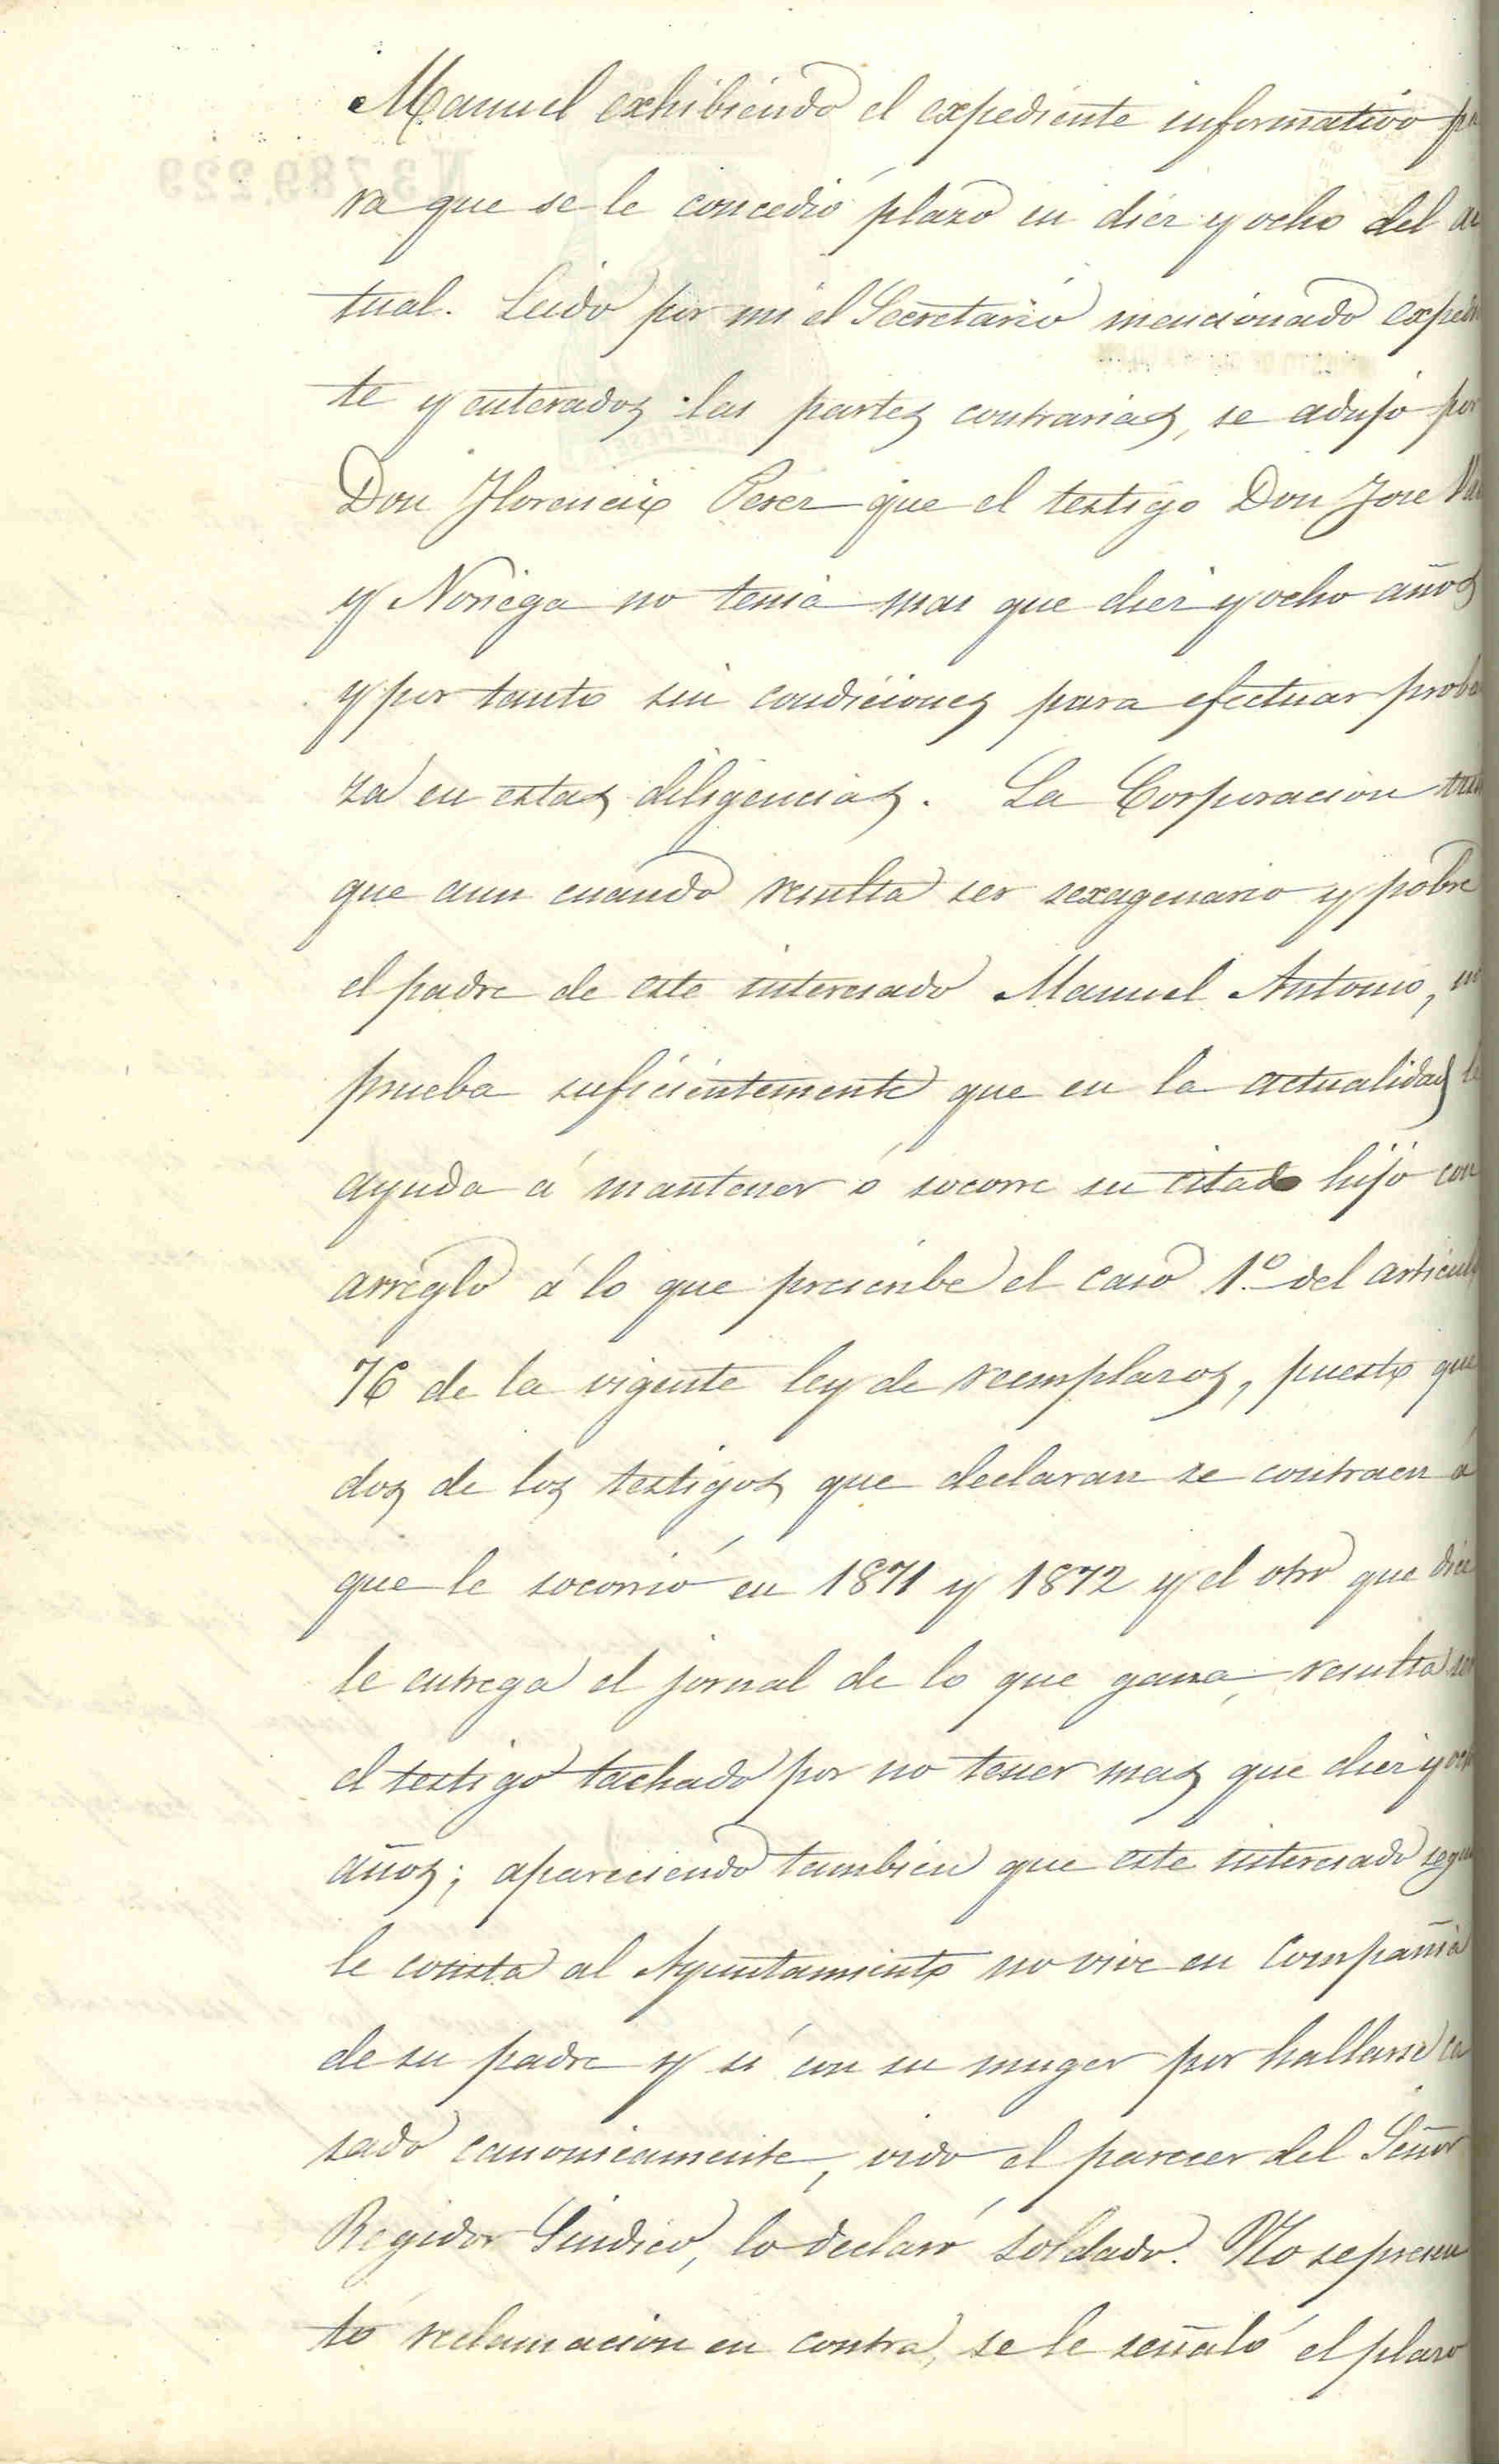 Manuel exhibiendo el expediente informativo pa
ra que se le concedió plazo en diez y ocho del ac
tual. Leido por mi el Secretario mencionado expedien
te y enterados las partes contrarias, se adujo por
Don Florencio Perez que el testigo Don Jose
y Noriega no tenia mas que diez y ocho años
y por tanto sin condiciones para efectuar proban
za en estas diligencias. La Corporacion
que aun cuando resulta ser sexagenario y pobre
el padre de este interesado Manuel Antonio, no
prueba suficientemente que en la actualidad le
ayuda á mantener ó socorre su citado hijo con
arreglo á lo que prescribe el caso 1º del articulo
76 de la vigente ley de reemplazos, puesto que
dos de los testigos que declaran se contraen á
que le socorrió en 1871 y 1872 y el otro que dice
le entrega el jornal de lo que gana, resulta ser
el testigo tachado por no tener mas que diez y ocho
años; apareciendo tambien que este interesado segun
le consta al Ayuntamiento no vive en compañia
de su padre y si con su muger por hallarse ca
sado canonicamente, oido el parecer del Señor
Regidor Sindico, lo declaró soldado. No se presen
tó reclamacion en contra, se le señaló el plazo
N3.789.229